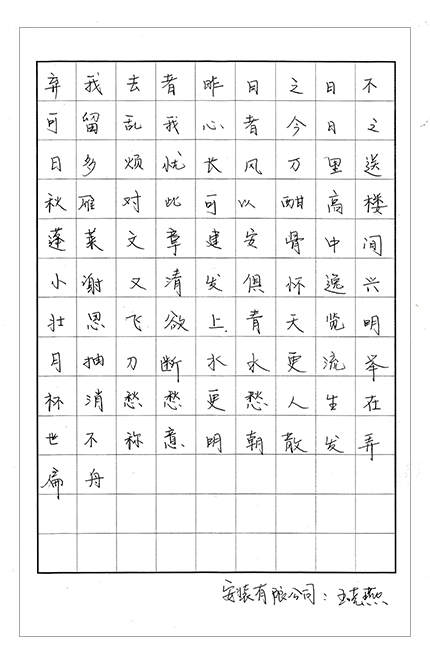 弃我去者昨日之日不
可留乱我心者今日之
日多烦忧长风万里送
秋雁对此可以酣高楼
蓬莱文章建安骨中间
小谢又清发俱怀逸兴
壮思飞欲上青天览明
月抽刀断水水更流举
杯消愁愁更愁人生在
世不称意明朝散发弄
扁舟
安装有限公司：王晓燕